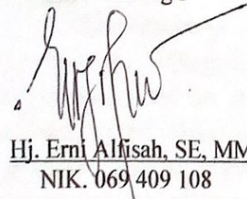 Hj. Erni Alfisah, SE, MM
NIK. 069 409 108